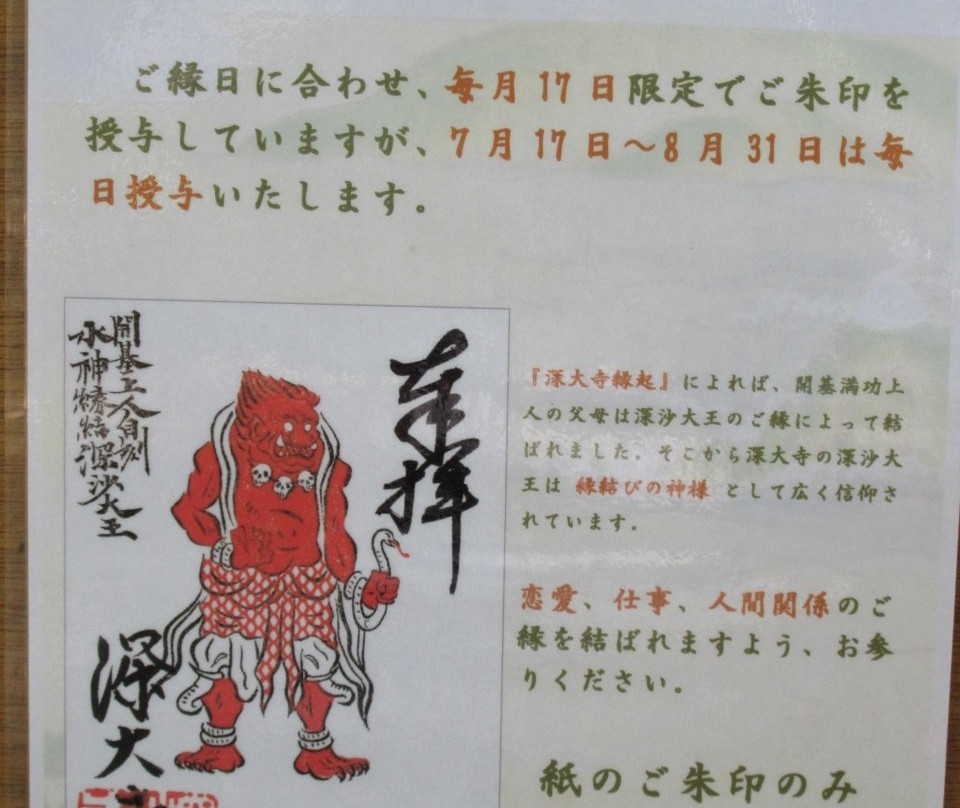 ご縁日に合わせ、毎月17日限定でご朱印を
授与していますが、7月17日～8月31日は毎
日授与いたします。
奉拝
開基上人自刻
水神縁結深沙大王
深大
『深大寺縁起』によれば、開基満功上
人の父母は深沙大王のご縁によって結
ばれました。そこから深大寺の深沙大
王は 縁結びの神様 として広く信仰さ
れています。
恋愛、仕事、人間関係のご
縁を結ばれますよう、お参
りください。
紙のご朱印のみ